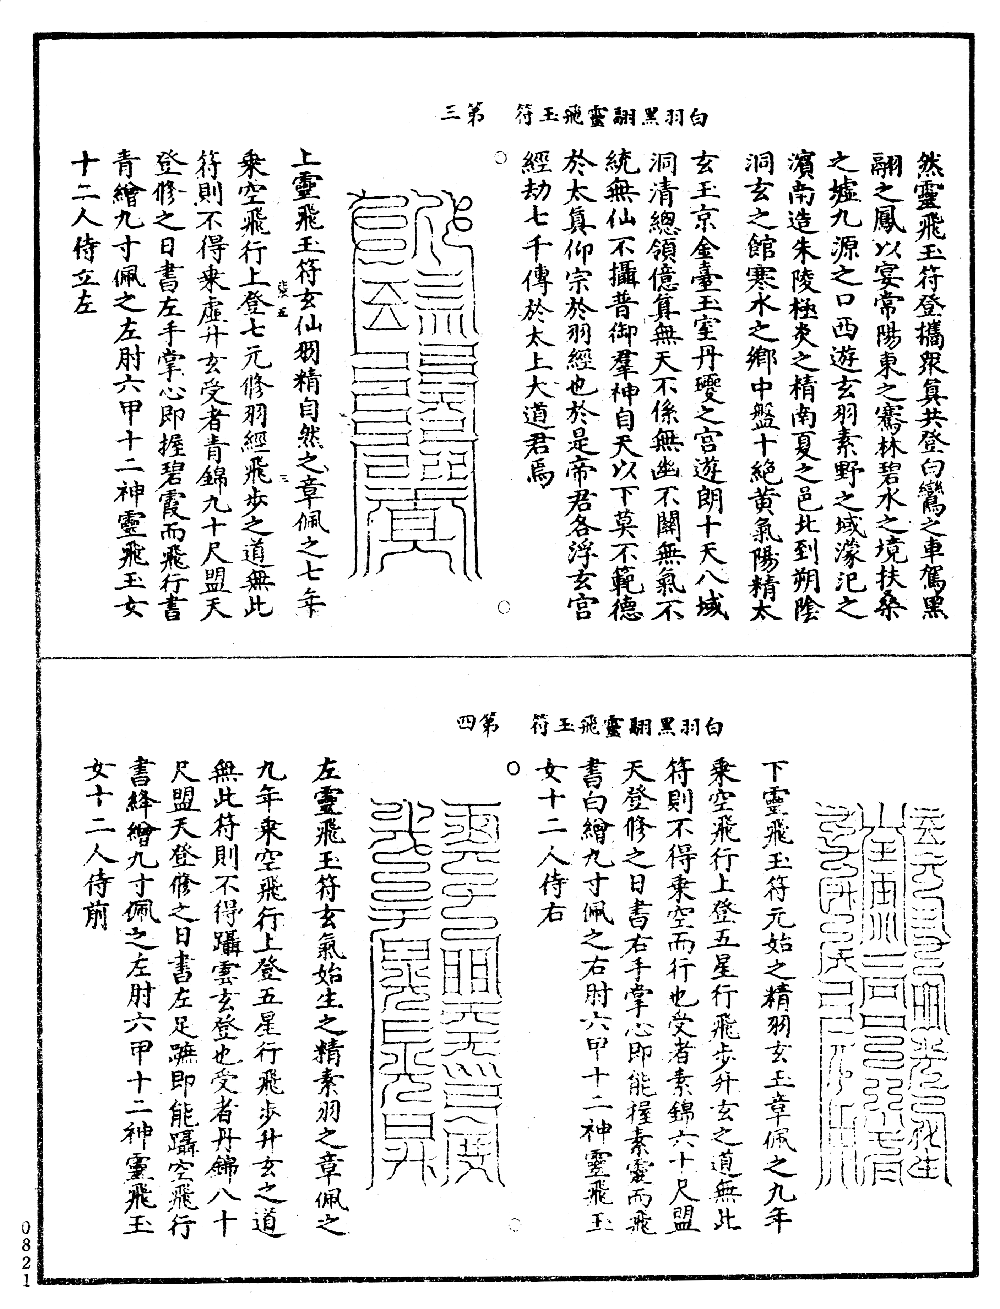 白羽黑翮靈飛玉符　第三
然靈飛玉符登攜眾真共登白鸞之車駕黑
翮之鳳以宴常陽東之騫林碧水之境扶桑
之墟九源之口西遊玄羽素野之域濛汜之
濱南造朱陵極炎之精南夏之邑北到朔陰
洞玄之館寒水之鄉中盤十絕黃氣陽精太
玄玉京金臺玉室丹瓊之宮遊朗十天八域
洞清總領億真無天不係無幽不關無氣不
統無仙不攝普御羣神自天以下莫不範德
於太真仰宗於羽經也於是帝君各浮玄宮
經劫七千傳於太上大道君焉
上靈飛玉符玄仙翮精自然之章佩之七年
乘空飛行上登七元修羽經飛步之道無此
符則不得乘虛升玄受者青錦九十尺盟天
登修之日書左手掌心即握碧霞而飛行書
青繒九寸佩之左肘六甲十二神靈飛玉女
十二人侍立左
白羽黑翮靈飛玉符　第四
下靈飛玉符元始之精羽玄玉章佩之九年
乘空飛行上登五星行飛步升玄之道無此
符則不得乘空而行也受者素錦六十尺盟
天登修之日書右手掌心即能握素靈而飛
書白繒九寸佩之右肘六甲十二神靈飛玉
女十二人侍右
左靈飛玉符玄氣始生之精素羽之章佩之
九年乘空飛行上登五星行飛步升玄之道
無此符則不得躡雲玄登也受者丹錦八十
尺盟天登修之日書左足蹠即能躡空飛行
書絳繒九寸佩之左肘六甲十二神靈飛玉
女十二人侍前
0821